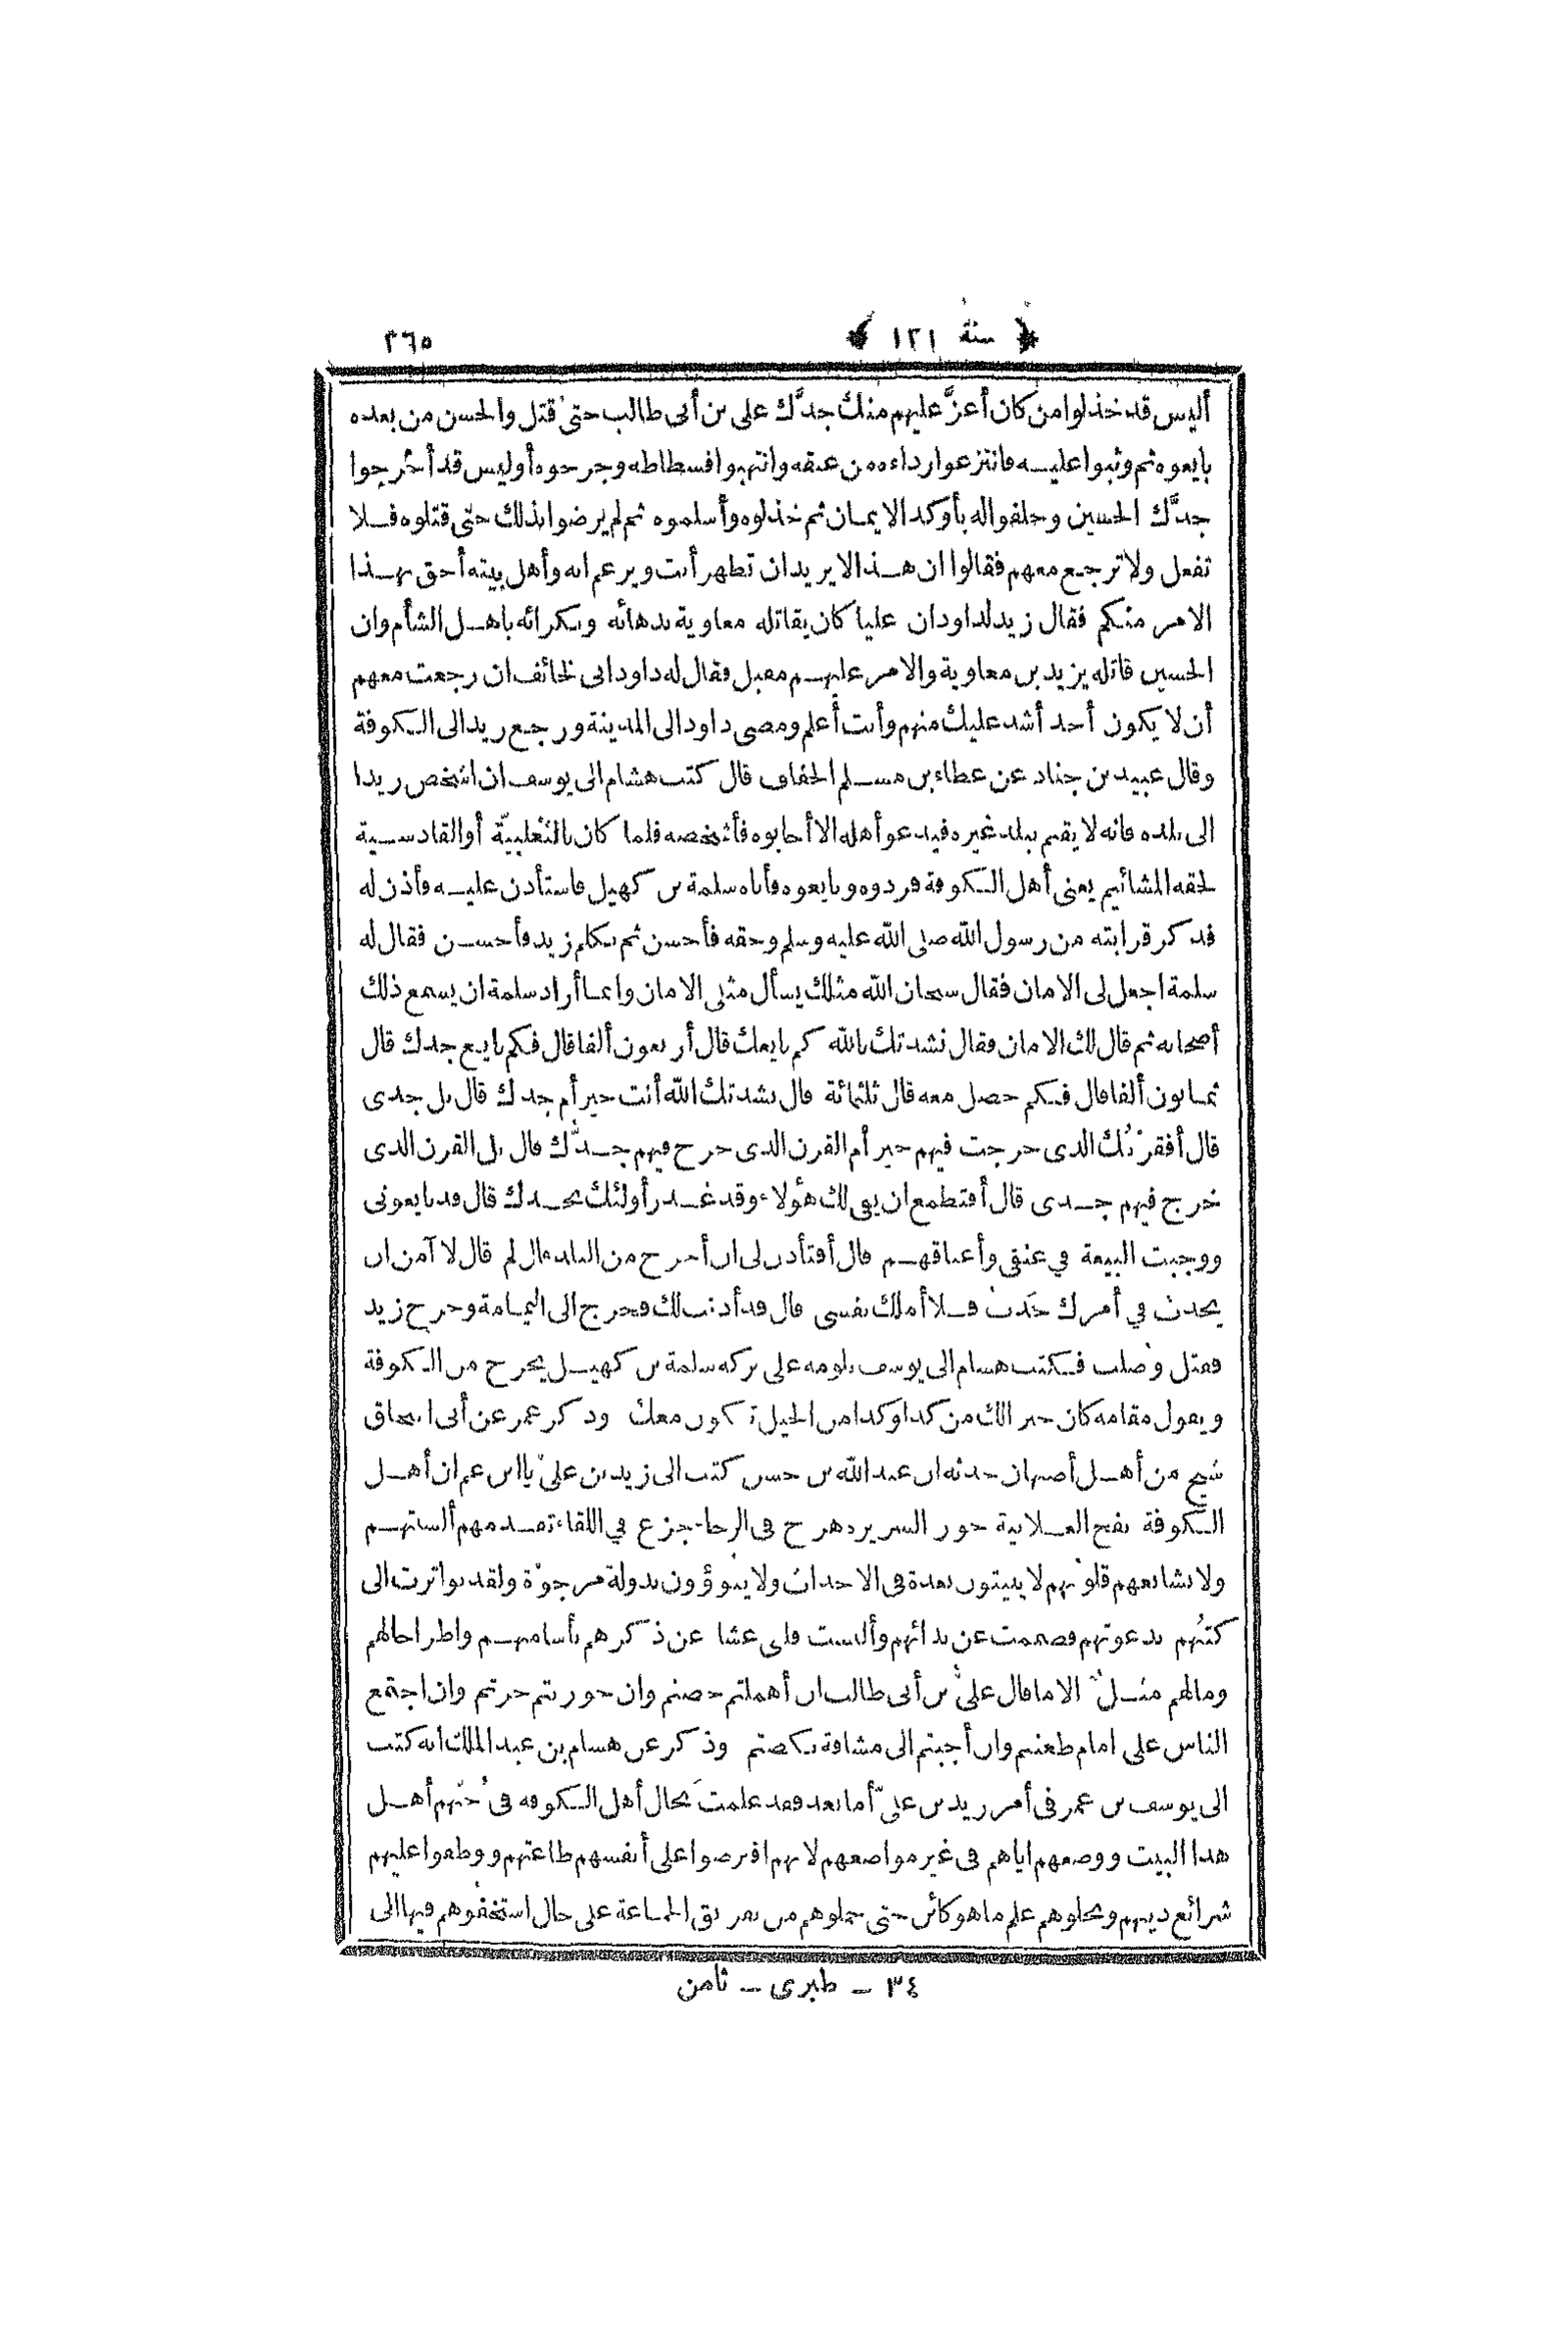 ﴿ سنة ١٢١ ﴾ ٢٦٥
أليس قد خذلوا من كان أعزَّ عليهم منك جدَّك على بن أبى طالب حتى قتل والحسن من بعده
بايعوه ثم وثبوا عليه فانتزعوا رداءه من عنقه وانتهبوا فسطاطه وجرحوه أوليس قد أخرجوا
جدَّك الحسين وحلفوا له بأوكد الايمان ثم خذلوه وأسلموه ثم لم يرضوا بذلك حتى قتلوه فلا
تفعل ولا ترجع معهم فقالوا ان هذا لا يريد ان تظهر أنت ويزعم انه وأهل بيته أحق بهذا
الامر منكم فقال زيد لداود ان عليا كان يقاتله معاوية بدهائه وبكرائه باهل الشأم وان
الحسين قاتله يزيد بن معاوية والامر عليهم مقبل فقال له داود انى لخائف ان رجعت معهم
أن لا يكون أحد أشد عليك منهم وأنت أعلم ومضى داود الى المدينة ورجع زيد الى الكوفة
وقال عبيد بن جناد عن عطاء بن مسلم الخفاف قال كتب هشام الى يوسف ان اشخص زيدا
الى بلده فانه لا يقيم ببلد غيره فيدعو أهله الا أجابوه فأشخصه فلما كان بالثعلبيّة أو القادسية
لحقه المشائيم يعنى أهل الكوفة فردوه وبايعوه فأتاه سلمة بن كهيل فاستأذن عليه فأذن له
فذكر قرابته من رسول الله صلى الله عليه وسلم وحقه فأحسن ثم تكلم زيد فأحسن فقال له
سلمة اجعل لى الامان فقال سبحان الله مثلك يسأل مثلى الامان وانما أراد سلمة ان يسمع ذلك
أصحابه ثم قال لك الامان فقال نشدتك بالله كم بايعك قال أربعون ألفا قال فكم بايع جدك قال
ثمانون ألفا قال فكم حصل معه قال ثلثمائة قال نشدتك الله أنت خير أم جدك قال بل جدى
قال أفقرنُك الذى خرجت فيهم خير أم القرن الذى خرج فيهم جدّك قال بل القرن الذى
خرج فيهم جدى قال أفتطمع ان يفى لك هؤلاء وقد غدر أولئك بجدك قال قد بايعونى
ووجبت البيعة في عنقى وأعناقهم قال أفتأذن لى ان أخرج من البلد قال لم قال لا آمن ان
يحدث في أمرك حَدث فلا أملك نفسى قال قد أذنت لك فخرج الى اليمامة وخرج زيد
فقتل وصلب فكتب هشام الى يوسف يلومه على تركه سلمة بن كهيل يخرج من الكوفة
ويقول مقامه كان خيرا لك من كذا وكذا من الخيل تكون معك وذكر عمر عن أبى اسحاق
شيخ من أهل أصبهان حدثه ان عبد الله بن حسن كتب الى زيد بن علىّ يا ابن عم ان أهل
الكوفة نفخ العلانية خور السريرة هرج فى الرخاء جزع في اللقاء تقدمهم ألسنتهم
ولا تشايعهم قلوبهم لا يبيتون بعدة فى الاحداث ولا ينوؤون بدولة مرجوّة ولقد تواترت الى
كتبُهم بدعوتهم فصممت عن ندائهم وألبست قلبى غشا عن ذكرهم يأسا منهم واطراحا لهم
ومالهم مثل الا ما قال علىّ بن أبى طالب ان أهملتم خضتم وان حوربتم خرتم وان اجتمع
الناس على امام طعنتم وان أجبتم الى مشاقة نكصتم وذكر عن هشام بن عبد الملك انه كتب
الى يوسف بن عمر فى أمر زيد بن علىّ أما بعد فقد علمتَ بحال أهل الكوفة فى حبّهم أهل
هذا البيت ووضعهم اياهم فى غير مواضعهم لانهم افترضوا على أنفسهم طاعتهم ووظفوا عليهم
شرائع دينهم ونحلوهم علم ما هو كائن حتى حملوهم من تفريق الجماعة على حال استخفّوهم فيها الى
٣٤ - طبرى - ثامن